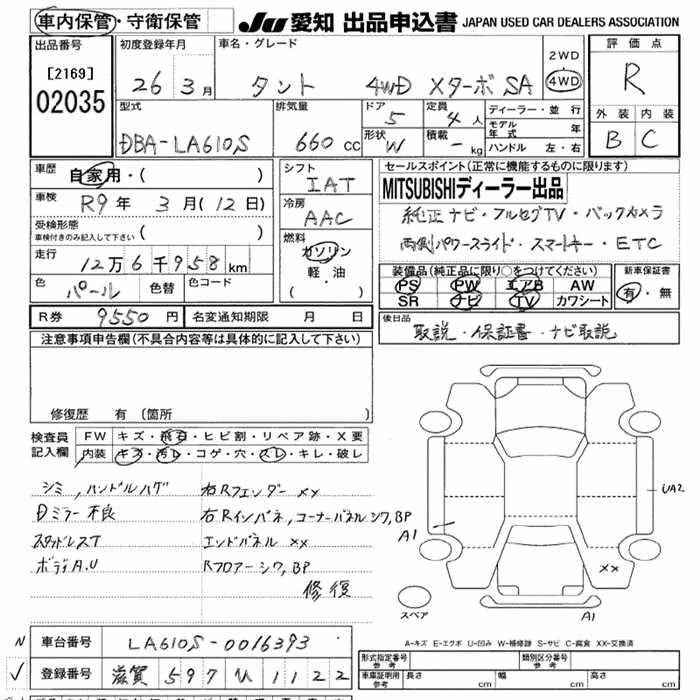 車内保管・守衛保管 JU 愛知 出品申込書 JAPAN USED CAR DEALERS ASSOCIATION
出品番号 初度登録年月 車名・グレード 評価点
[2169] 26 3月 タント 4WD XターボSA 2WD 4WD R
02035 型式 排気量 ドア 定員 ディーラー・並行 外装 内装
DBA-LA610S 660cc 5 4人 モデル年式 年
形状 W 積載 - kg ハンドル 左・右 B C
車歴 自家用・( ) シフト セールスポイント(正常に機能するものに限ります)
IAT MITSUBISHIディーラー出品
車検 R9年 3月(12日) 冷房 純正ナビ・フルセグTV・バックカメラ
AAC
受検形態 両側パワースライド・スマートキー・ETC
車検付きのみ記入して下さい ( ) 燃料
走行 12万6千958km ガソリン 装備品(純正品に限り○をつけてください) 新車保証書
軽・油 PS PW エアB AW 有・無
色 パール 色替 色コード ( ) SR ナビ TV カワシート
R券 9550円 名変通知期限 月 日 後日品
取説・保証書・ナビ取説
注意事項申告欄(不具合内容等は具体的に記入して下さい)
修復歴 有(箇所
検査員 FW キズ・飛石・ヒビ割・リペア跡・X要
記入欄 内装 キズ・汚レ・コゲ・穴・スレ・キレ・破レ
シミ,ハンドルハゲ 右Rフェンダー XX UA2
Dミラー不良 右Rインパネ,コーナーパネルシワ,BP A1
スタッドレスT エンドパネル XX
ボディA.U Rフロアーシワ,BP XX
修復
スペア A1
A-キズ E-エクボ U-凹み W-補修跡 S-サビ C-腐食 XX-交換済
N 車台番号 LA610S-0016393
形式指定番号 参考 類別区分番号 参考
✓ 登録番号 滋賀 597 ひ 1122 車庫証明用 参考 長さ cm 幅 cm 高さ cm